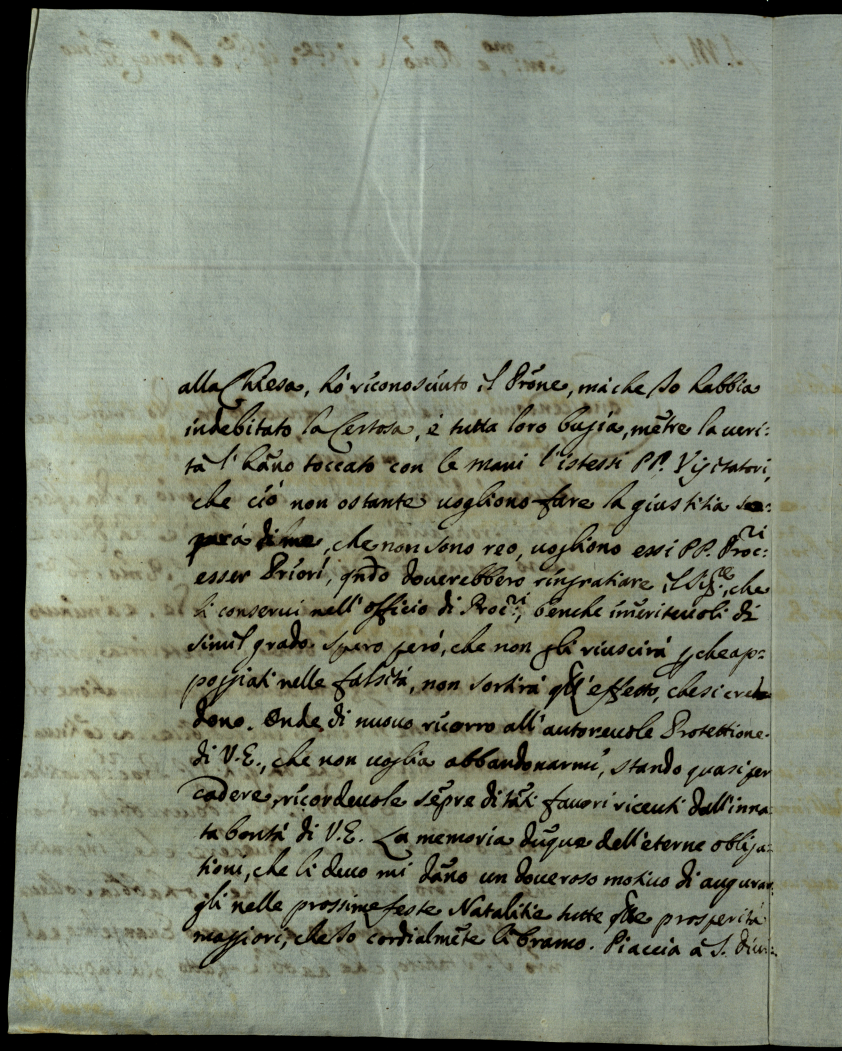 alla Chiesa, hó riconosciuto il Prōne, má che Io habbia
indebitato la Certosa, é tutta loro bugia, mētre la veri:
tá l'hāno toccato con le mani l'istessi PP. Visitatori,
che ció non ostante vogliono fare la giustitia
di me, che non sono reo, vogliono essi PP. Proc:ri
esser Priori, qn̄do doverebbero ringratiare il Sig.re, che
li conservi nell'officio di Proc:ri, benche im̄eritevoli di
simil grado. Spero peró, che non gli riuscirá ꝑche ap:
poggiati nelle falsitá, non sortirá qll'effetto, che si cre
dono. Onde di nuovo ricorro all'autorevole Protettione
di V.E., che non voglia abbandonarmi, stando quasi per
cadere, ricordevole sēpre di tāti favori riceuti dall'inna:
ta bontá di V.E. La memoria dūque dell'eterne obliga:
tioni, che li devo mi dāno un doveroso motivo di augurar
gli nelle prossime feste Natalitie tutte qlle prosperitá
maggiori, che Io cordialmēte li bramo. Piaccia á S. Divi: